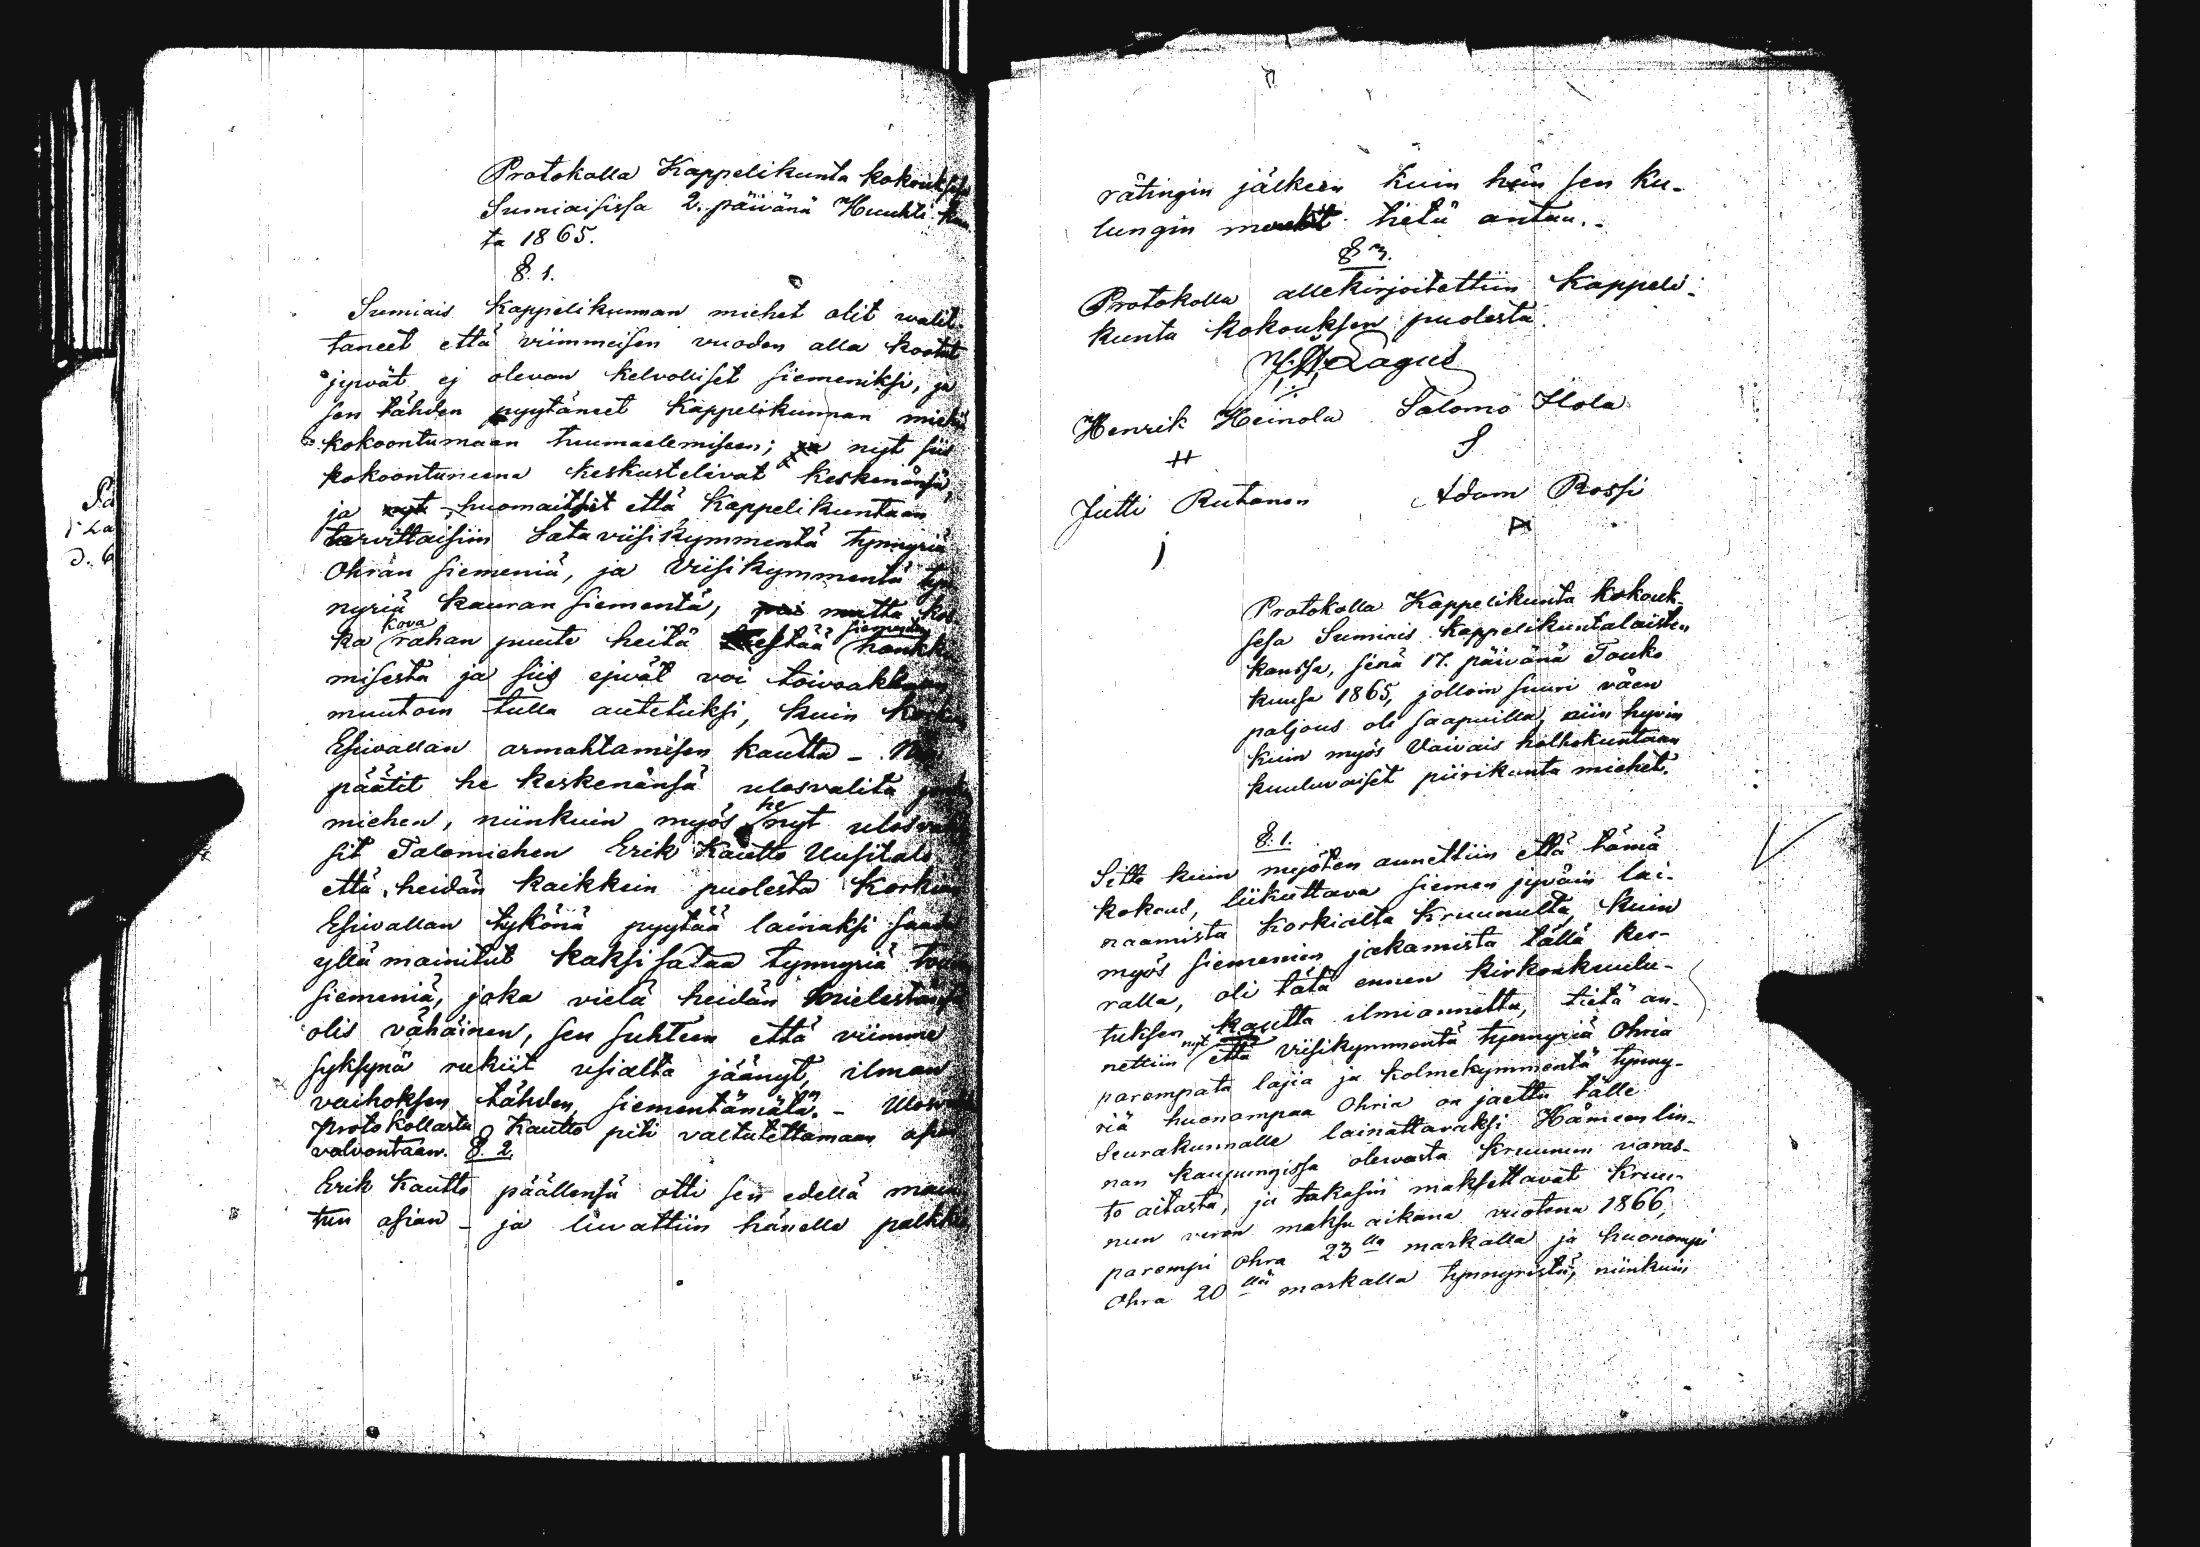 Protokolla Kappelikunta kokouksesa
Sumiaisissa 2. päivänä Huuhti kuu
ta 1865.
§. 1.
Sumiais Kappelikunnan miehet olit walit
taneet että viimmeisen vuoden alla kootut
jyvät ej olevan kelvolliset siemeniksi, ja
sen tähden pyytäneet Kappelikunnan miehiä
kokoontumaan tuumaelemiseen; ja nyt siis
kokoontuneena keskustelivat keskenänsä,
ja nyt huomaitsit että Kappelikuntaan
tarvittaisiin Sata viisikymmentä tynnyriä
Ohran siemeniä, ja Viisikymmentä tyn
nyriä kauran siementä, mutta kos
ka kova rahan puute heitä estää siementen hankki
misesta ja siis ejvät voi toivoakkaan
muutoin tulla autetuksi, kuin Korkian
Esivallan armahtamisen kautta –
päätit he keskenänsä ulosvalita
miehen, niinkuin myös he nyt ulosvali
sit Talomiehen Erik Kautto Uusitalo
että heidän kaikkein puolesta Korkian
Esivallan tykönä pyytää lainaksi saada
yllä mainitut kaksi sataa tynnyriä touon
siemeniä, joka vielä heidän mielestänsä
olis vähäinen, sen suhteen että viimme
syksynä rukiit usialta jäänyt, ilman
vaihoksen tähden, siementämätä. –
Protokollasta Kautto piti valtutettamaan asian
valvontaan. §. 2.
Erik Kautto päällensä otti sen edellä main
tun asian – ja luvattiin hänelle palkka
rätingin jälkeen kuin hän sen ku-
lungin tietä antaa. –
§ 3.
Protokolla allekirjoitettiin Kappeli-
kunta kokouksen puolesta.
Lagus
Henrik Heinola Salomo Ilola
H S
Jutti Rutanen Adam Rossi
j A
Protokolla Kappelikunta kokouk-
sesa Sumiais Kappelikuntalaisten
kanssa, senä 17. päivänä Touko
kuusa 1865, jolloin suuri väen
paljous oli saapuilla, niin hyvin
kuin myös Vaivais holhokuntaan
kuuluvaiset piirikunta miehet.
§. 1.
Sitte kuin myöten annettiin että tämä
kokous, liikuttava siemen jyväin lai-
naamista Korkialta Kruunulta, kuin
myös siemenien jakamista tällä ker-
ralla, oli tätä ennen kirkonkuulu-
tuksen kautta ilmiannettu, tietä an-
nettiin nyt että Viisikymmentä tynnyriä Ohria
parempata lajia ja kolmekymmentä tynny-
riä huonompaa Ohria on jaettu tälle
Seurakunnalle lainattavaksi Hämeenlin-
nan kaupungissa olevasta Kruunun varas-
to aitasta, ja takasin maksettavat Kruu-
nun veron maksu aikana vuotena 1866,
parempi Ohra 23lla markalla ja huonompi
Ohra 20llä markalla tynnyristä, niinkuin